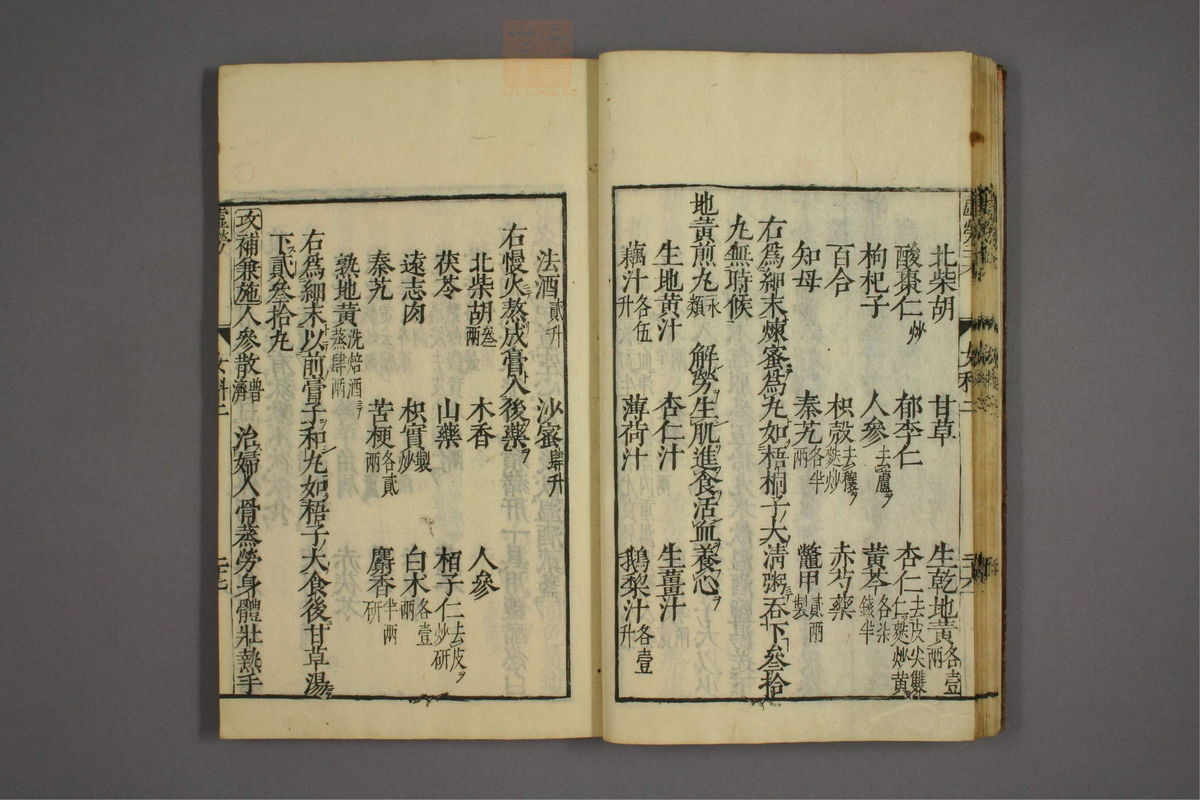 北柴胡　甘草　生乾地黄各壹兩
酸棗仁炒　郁李仁　杏仁去皮尖雙仁麩炒黄
枸杞子　人參去蘆ヲ　黄芩各柒錢半
百合　枳殼去穰ヲ麩炒　赤芍藥
知母　秦艽各半兩　鼈甲貳兩製
右爲細末煉蜜爲丸如梧桐子大清粥吞下叄拾
丸無時候
地黄煎丸永類　解勞生肌進食活血養心
生地黄汁　杏仁汁　生薑汁
藕汁各伍升　薄荷汁　鵝梨汁各壹升
法酒貳升　沙蜜肆升
右慢火熬成膏入後藥
北柴胡叄兩　木香　人參
茯苓　山藥　栢子仁去皮ヲ炒研
遠志肉　枳實製炒　白朮各壹兩
秦艽　苦梗各貳兩　麝香半兩研
熟地黄洗焙酒蒸肆兩
右爲細末以前膏子和丸如梧子大食後甘草湯
下貳叄拾丸
攻補兼施人參散普濟　治婦人骨蒸勞身體壯熱手
女科二